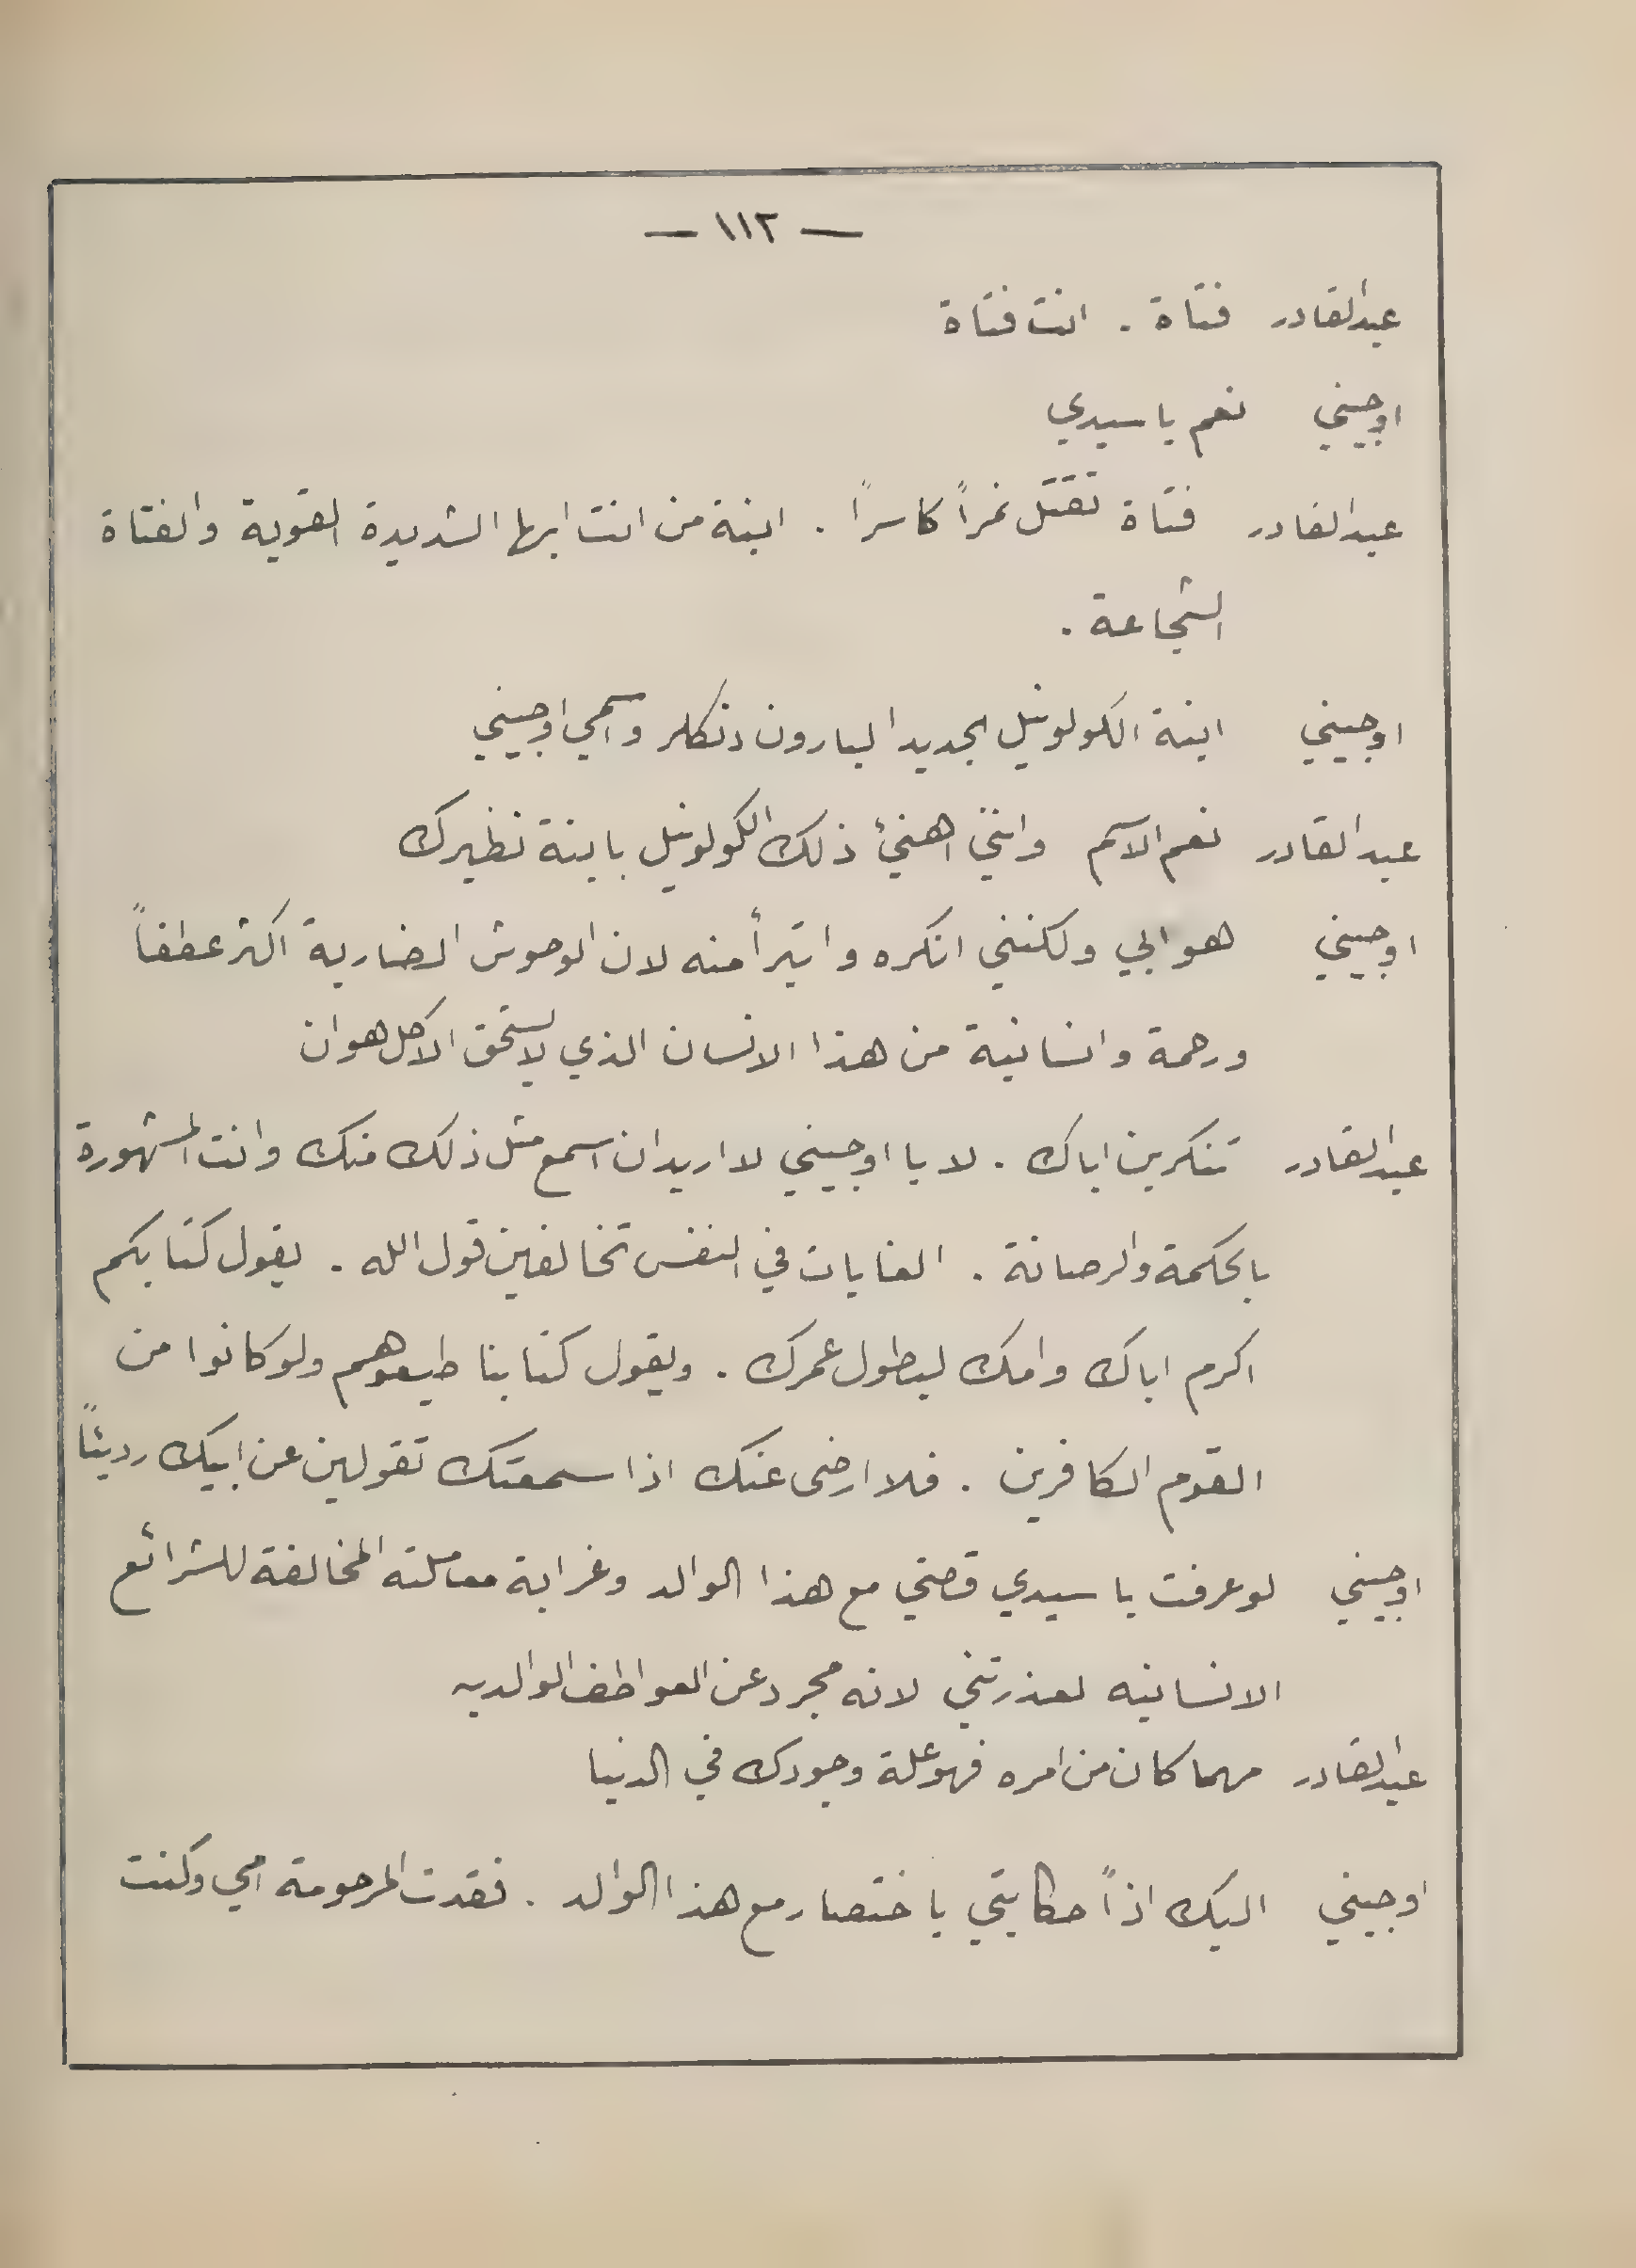 — ١١٢ —
عبدالقادر فتاة . انت فتاة
اوجيني نعم يا سيدي
عبدالقادر فتاة تقتل نمراً كاسراً . ابنة من انت ايها الشديدة القوية والفتاة
الشجاعة .
اوجيني ابنة الكولونيل الجديد البارون دنكلر واسمي اوجيني
عبدالقادر نعم الاسم وانني اهنئ ذلك الكولونيل بابنة نظيرك
اوجيني هو ابي ولكنني انكره واتبرأ منه لان الوحوش الضارية اكثر عطفاً
ورحمة وانسانية من هذا الانسان الذي لا يستحق الا كل هوان
عبدالقادر تنكرين اباك . لا يا اوجيني لا اريد ان اسمع مثل ذلك منك وانت المشهورة
بالحكمة والرصانة . الغايات في النفس تخالفين قول الله . يقول كتابكم
اكرم اباك وامك ليطول عمرك . ويقول كتابنا طيعوهم ولو كانوا من
القوم الكافرين . فلا ارضى عنك اذا سمعتك تقولين عن ابيك رديئاً
اوجيني لو عرفت يا سيدي قصتي مع هذا الوالد وغرابة معاملته المخالفة للشرائع
الانسانيه لعذرتني لانه مجرد عن العواطف الوالديه
عبدالقادر مهما كان من امره فهو علة وجودك في الدنيا
اوجيني اليك اذاً حكايتي باختصار مع هذا الوالد . فقدت المرحومة امي وكنت